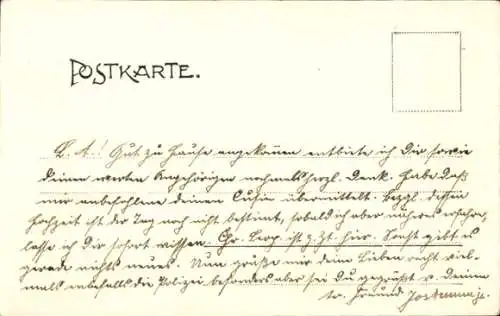 POSTKARTE.
L. A.! Gut zu Hause angekommen entbiete ich Dir sowie
Deinen werten Angehörigen nochmals herzl. Dank. Habe das
mir anbefohlene deinen Cusin übermittelt. Bezgl. dessen
Hochzeit ist der Tag noch nicht bestimt, sobald ich aber näheres erfahre,
lasse ich Dir sofort wissen. Chr. ist z. Zt. hier. Sonst gibt es
gerade nichts neues. Nun grüße mir deine Lieben recht viel-
mals die Polizei besonders aber sei Du gegrüßt v. Deinem
tr. Freund